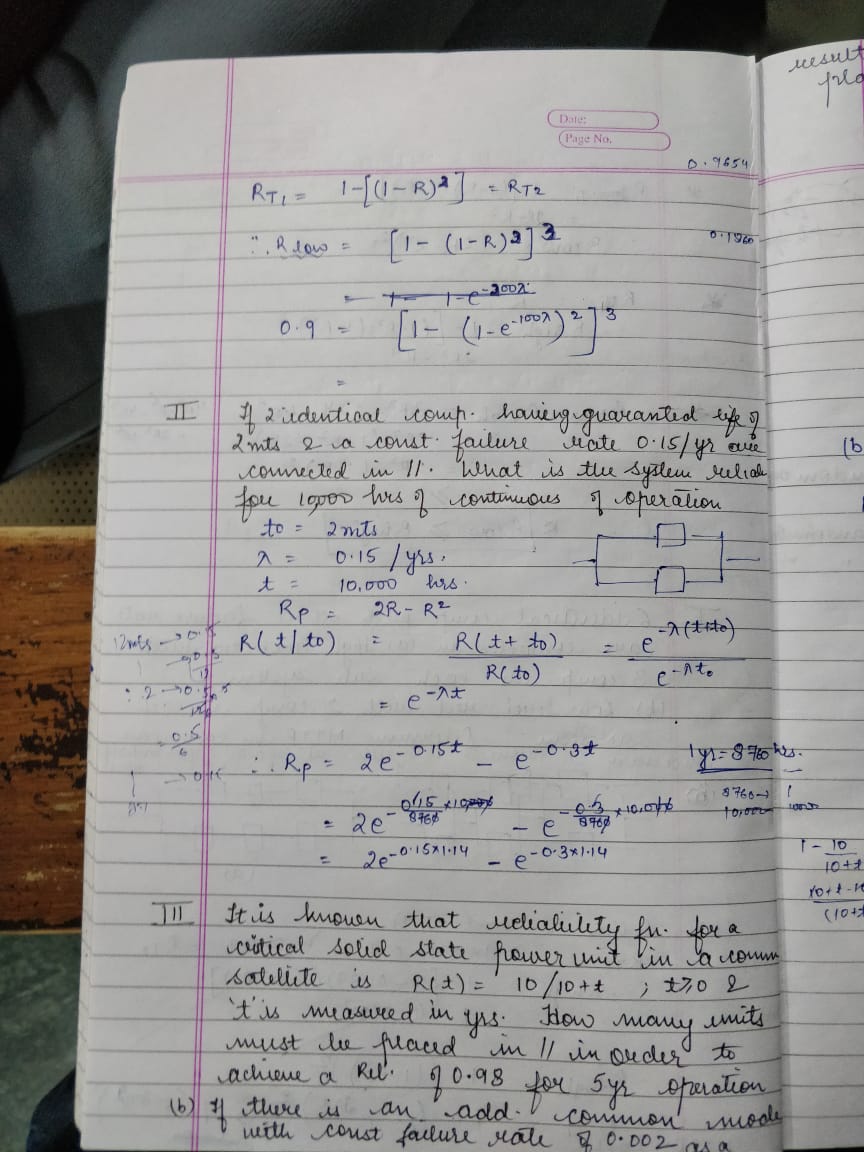 result
Date:
Page No.
0.9654
R_T1 = 1-[(1-R)^2] = R_T2
∴ R low = [1-(1-R)^2]^3
0.1860
0.9 = [1-(1-e^-100λ)^2]^3
=
II If 2 identical comp. having guaranted life of
2mts & a const. failure rate 0.15/yr are
connected in //. What is the system reliab
for 10,000 hrs of continuous of operation
to = 2mts
λ = 0.15 /yrs.
t = 10,000 hrs.
R_p = 2R - R^2
R(t/to) = R(t+to) / R(to) = e^-λ(t+to) / e^-λto
= e^-λt
12mts → 0.15
0.5
6
∴ R_p = 2e^-0.15t - e^-0.3t
1yr = 8760 hrs.
8760 → 1
10,000
= 2e^-0.15/8760 × 10,000 - e^-0.3/8760 × 10,000
= 2e^-0.15×1.14 - e^-0.3×1.14
III It is known that reliability fn. for a
critical solid state power unit in a comm
satellite is R(t) = 10/10+t ; t≥0 &
't' is measured in yrs. How many units
must be placed in // in order to
achieve a Rel. of 0.98 for 5yr operation
(b) If there is an add. common mode
with const failure rate of 0.002 as a
(b
1 - 10
10+t
10+t-10
(10+t